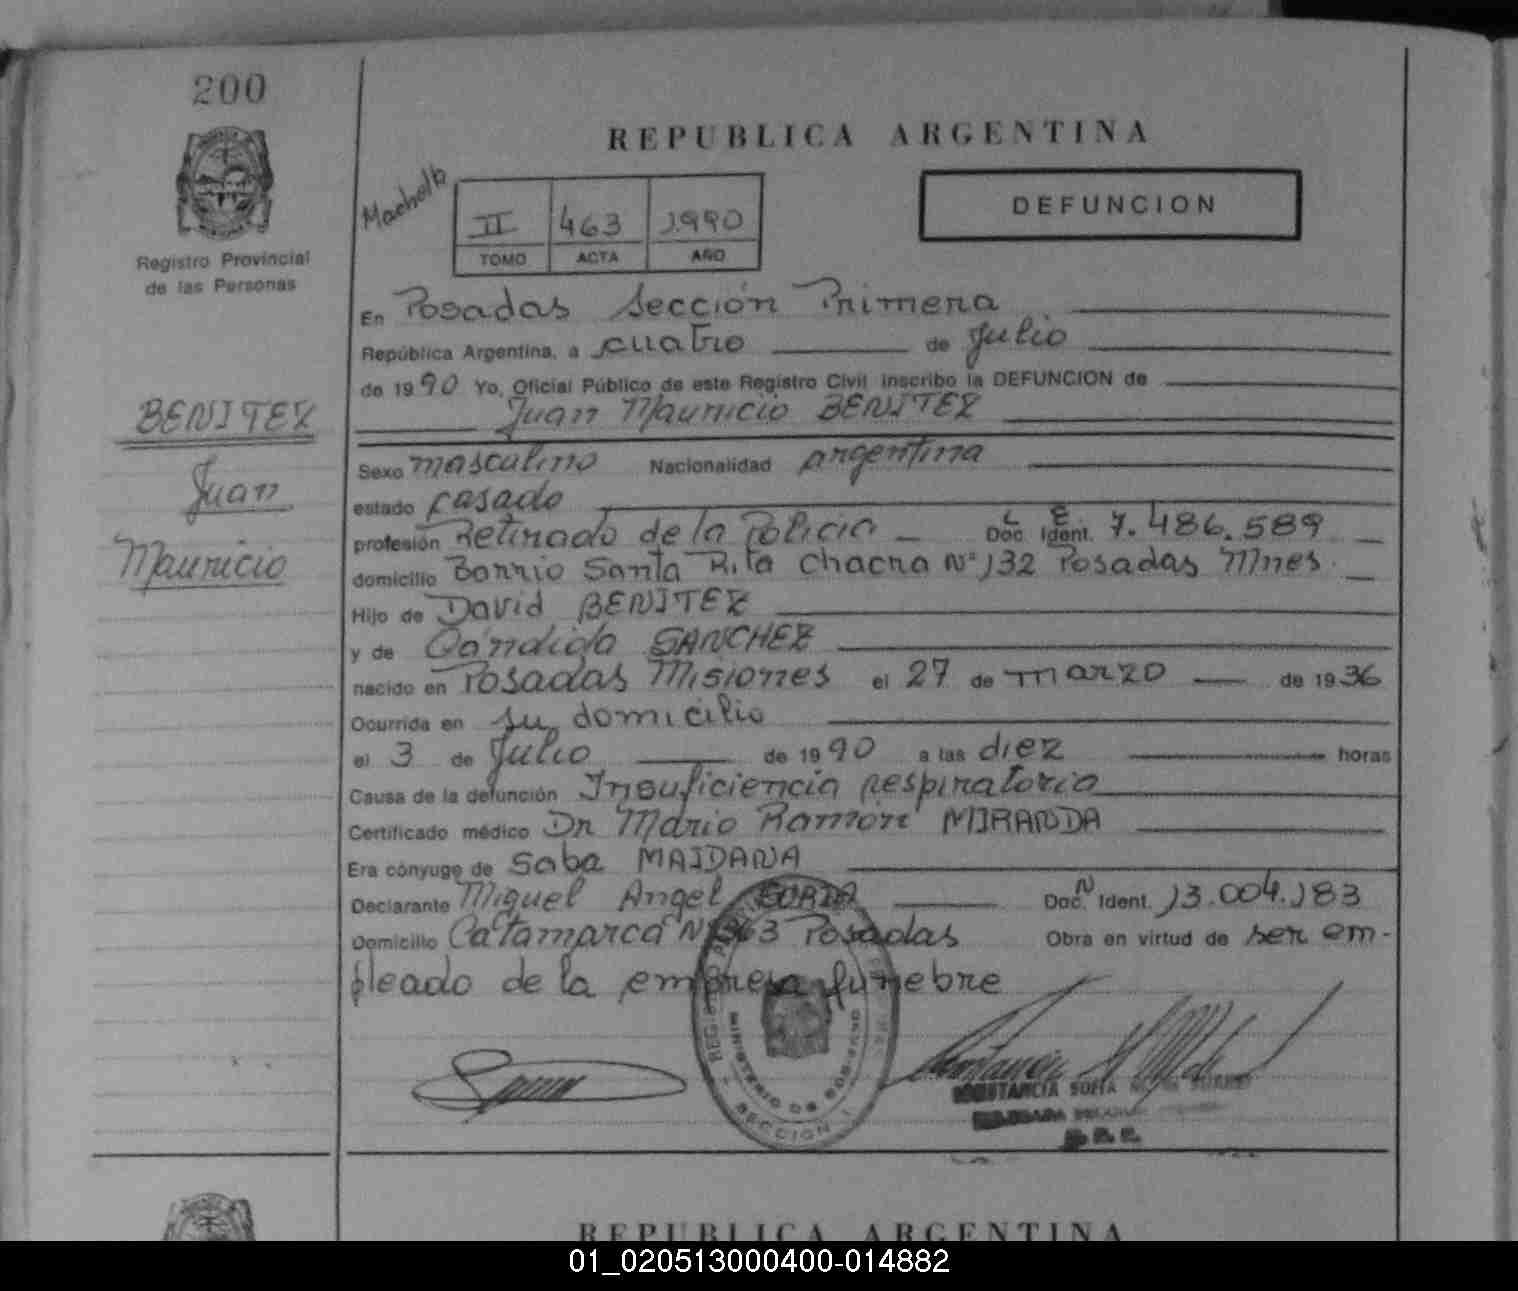 200
REPUBLICA ARGENTINA
II 463 1990
TOMO ACTA AÑO
DEFUNCION
Registro Provincial
de las Personas
En Posadas Sección Primera
República Argentina, a cuatro de Julio
de 1990 Yo, Oficial Público de este Registro Civil inscribo la DEFUNCION de
Juan Mauricio BENITEZ
BENITEZ
Juan
Mauricio
Sexo masculino Nacionalidad argentina
estado casado
profesión Retirado de la Policia Doc. Ident. L E 7.486.589
domicilio Barrio Santa Rita Chacra Nº 132 Posadas Mnes.
Hijo de David BENITEZ
y de Cándida SANCHEZ
nacido en Posadas Misiones el 27 de marzo de 1936
Ocurrida en su domicilio
el 3 de Julio de 1990 a las diez horas
Causa de la defunción Insuficiencia respiratoria
Certificado médico Dr Mario Ramón MIRANDA
Era cónyuge de Saba MAIDANA
Declarante Miguel Angel Doc. N Ident. 13.004.183
Domicilio Catamarca Nº 363 Posadas Obra en virtud de ser em-
pleado de la empresa fúnebre
MINISTERIO DE GOBIERNO
SECCION
CONSTANCIA SOFIA
REPUBLICA ARGENTINA
01_020513000400-014882